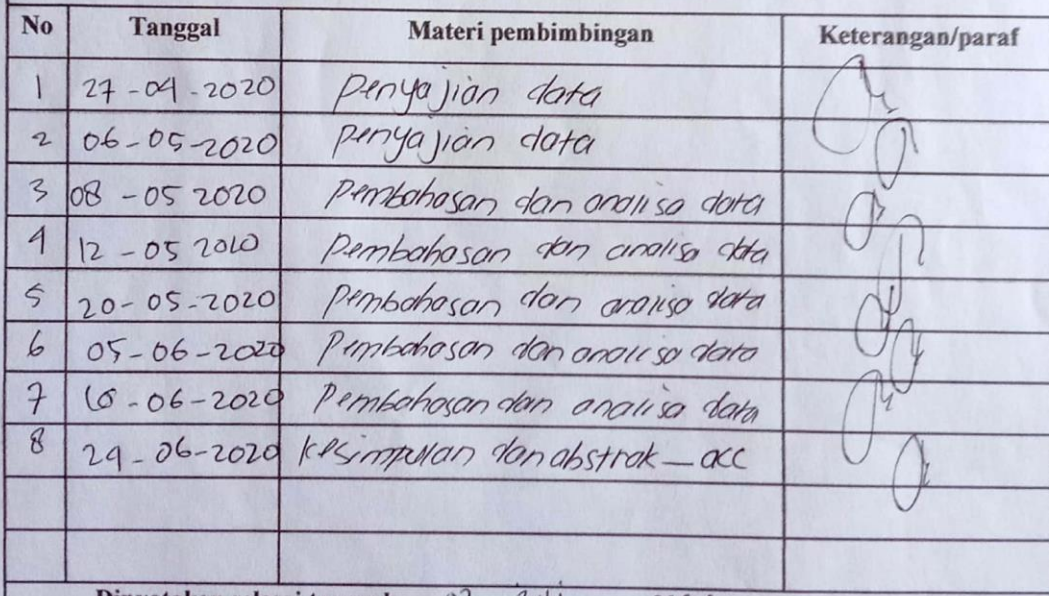 No Tanggal Materi pembimbingan Keterangan/paraf
1 27-04-2020 Penyajian data
2 06-05-2020 Penyajian data
3 08-05 2020 Pembahasan dan analisa data
4 12-05 2020 Pembahasan dan analisa data
5 20-05-2020 Pembahasan dan analisa data
6 05-06-2020 Pembahasan dan analisa data
7 -06-2020 Pembahasan dan analisa data
8 29-06-2020 Kesimpulan dan abstrak - acc